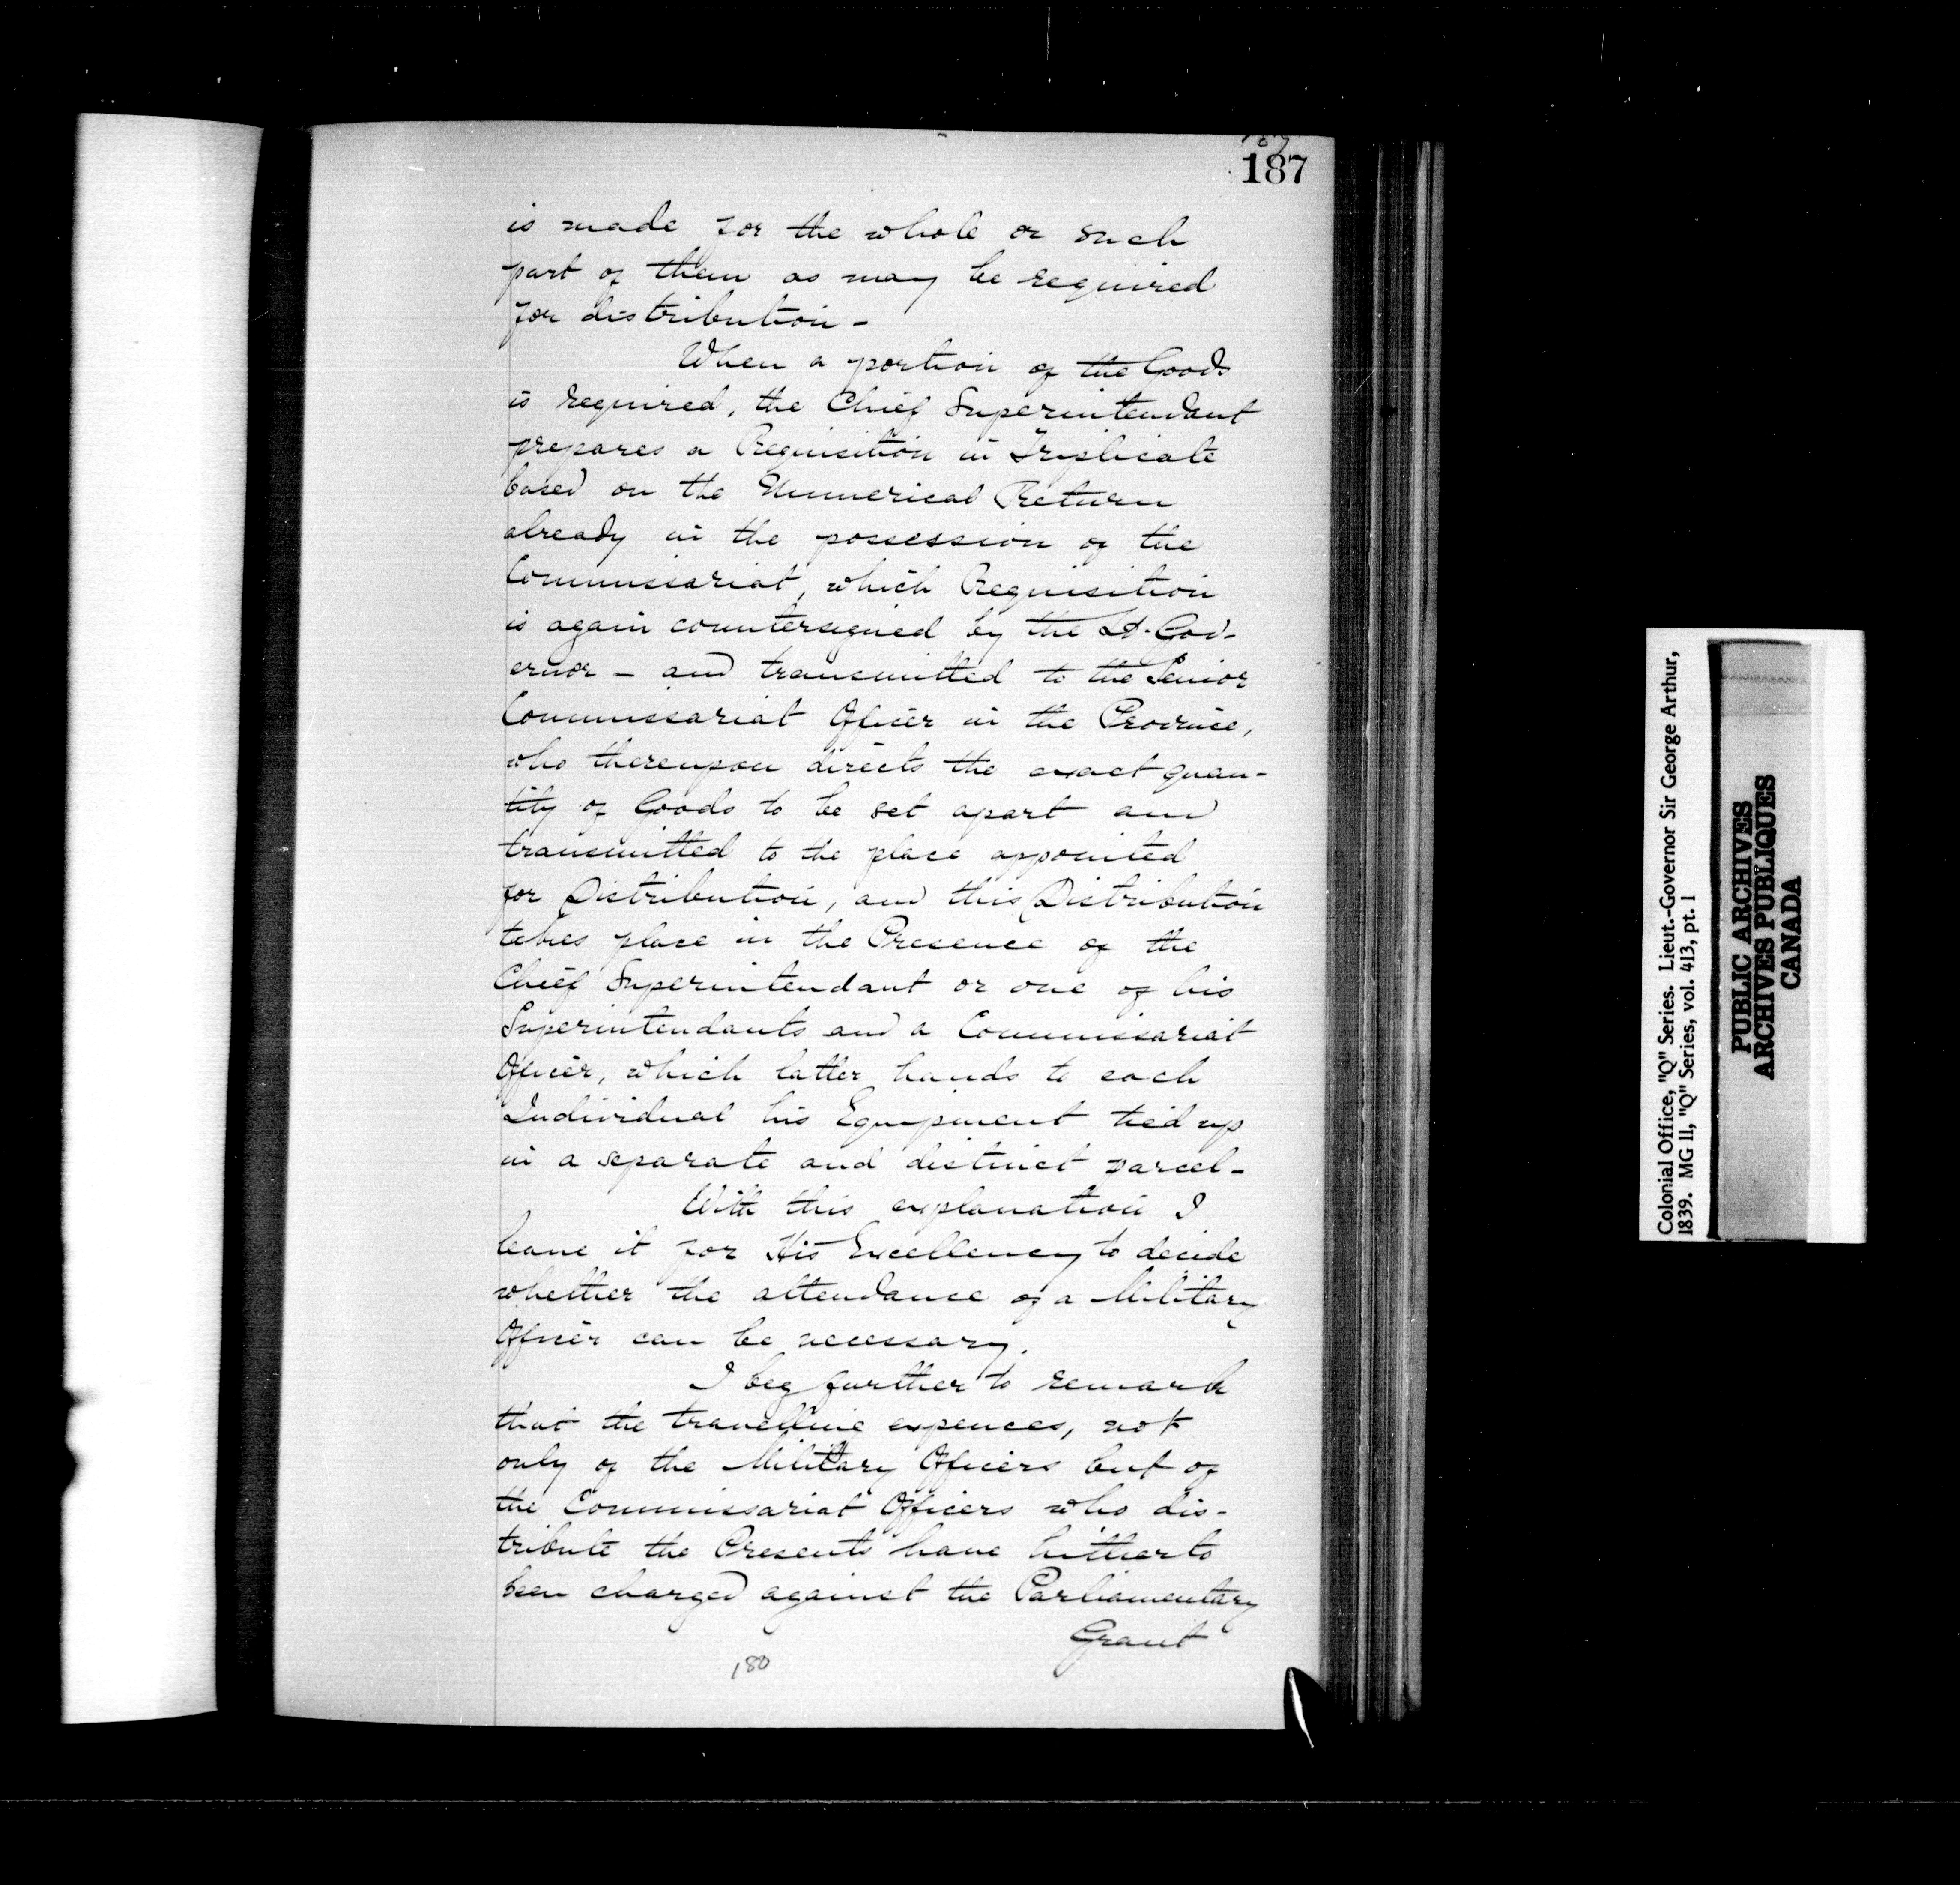 187
is made for the whole or such
part of them as may be required
for distribution -
When a portion of the Goods
is required, the Chief Superintendant
prepares a Requisition in Triplicate
based on the Numerical Return
already in the possession of the
Commissariat, which Requisition
is again countersigned by the Lt. Gov-
ernor - and transmitted to the Senior
Commissariat Officer in the Province,
who thereupon directs the exact quan-
tity of Goods to be set apart and
transmitted to the place appointed
for Distribution, and this Distribution
takes place in the Presence of the
Chief Superintendant or one of his
Superintendants and a Commissariat
Officer, which latter hands to each
Individual his Equipment tied up
in a separate and distinct parcel -
With this explanation I
leave it for His Excellency to decide
whether the attendance of a Military
Officer can be necessary.
I beg further to remark
that the travelling expences, not
only of the Military Officers but of
the Commissariat Officers who dis-
tribute the Presents have hitherto
been charged against the Parliamentary
Grant
180
Colonial Office, "Q" Series. Lieut.-Governor Sir George Arthur,
1839. MG 11, "Q" Series, vol. 413, pt. 1
PUBLIC ARCHIVES
ARCHIVES PUBLIQUES
CANADA